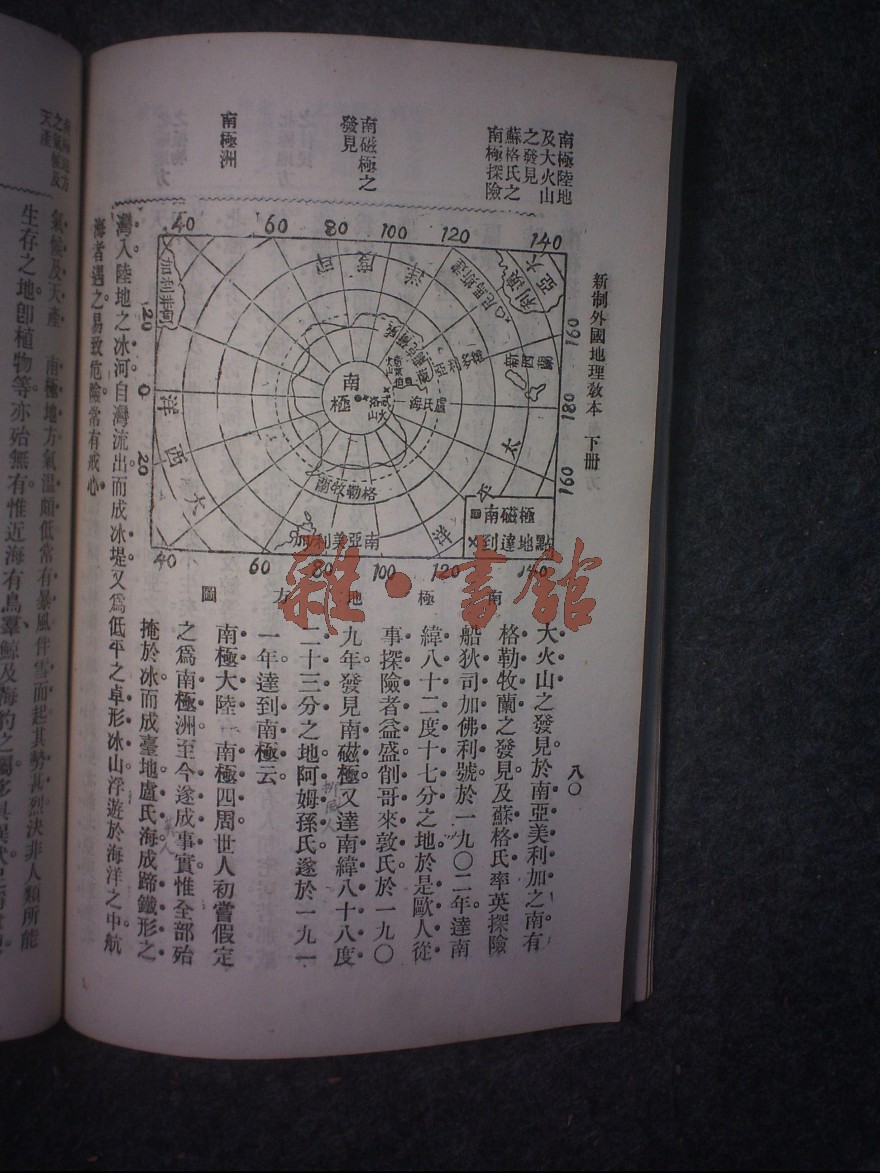 新制外國地理教本 下册
八〇
南極陸地
及大火山
之發見
蘇格氏之
南極探險
南磁極之
發見
南極洲
40 60 80 100 120 140
160
180
160
20
0
20
40 60 80 100 120 140
印度洋
太平洋
大西洋
南極
盧氏海
格勒牧蘭
南亞美利加
南磁極
到達地點
南極地方圖
大火山之發見於南亞美利加之南有
格勒牧蘭之發見及蘇格氏率英探險
船狄司加佛利號於一九〇二年達南
緯八十二度十七分之地於是歐人從
事探險者益盛削哥來敦氏於一九〇
九年發見南磁極又達南緯八十八度
二十三分之地阿姆孫氏遂於一九一
一年達到南極云。
南極大陸 南極四周世人初嘗假定
之爲南極洲至今遂成事實惟全部殆
掩於冰而成臺地盧氏海成蹄鐵形之
灣入陸地之冰河自灣流出而成冰堤又爲低平之卓形冰山浮遊於海洋之中航
海者遇之易致危險常有戒心
南極地方
之氣候及
天產
氣候及天產 南極地方氣溫頗低常有暴風伴雪而起其勢甚烈決非人類所能
生存之地卽植物等亦殆無有惟近海有鳥羣鯨及海豹之屬
雜·書館